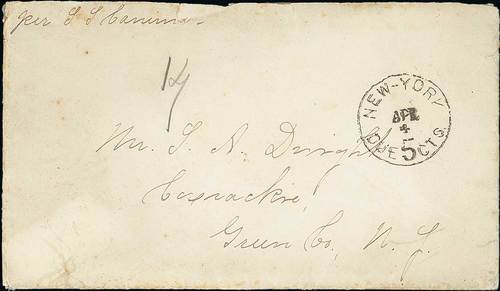 per S S
14
NEW-YORK
APR
4
DUE 5 CTS
Mr. S. A. Dwight
Coxsackie
Green Co, N. Y.